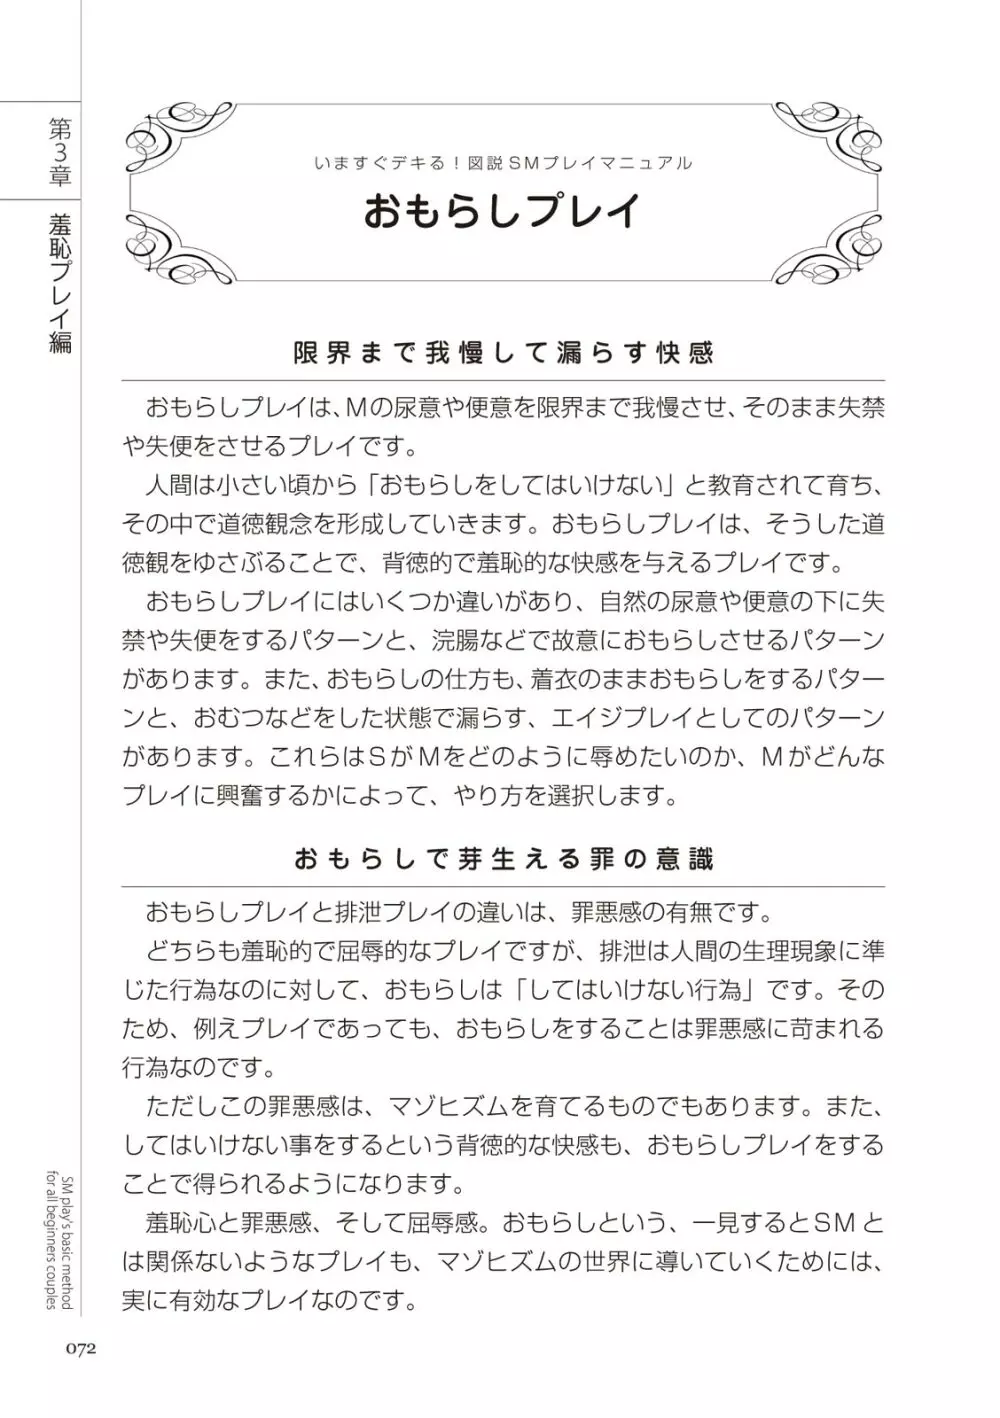 第3章
羞恥プレイ編
いますぐデキる！図説SMプレイマニュアル
おもらしプレイ
限界まで我慢して漏らす快感
おもらしプレイは、Mの尿意や便意を限界まで我慢させ、そのまま失禁
や失便をさせるプレイです。
人間は小さい頃から「おもらしをしてはいけない」と教育されて育ち、
その中で道徳観念を形成していきます。おもらしプレイは、そうした道
徳観をゆさぶることで、背徳的で羞恥的な快感を与えるプレイです。
おもらしプレイにはいくつか違いがあり、自然の尿意や便意の下に失
禁や失便をするパターンと、浣腸などで故意におもらしさせるパターン
があります。また、おもらしの仕方も、着衣のままおもらしをするパター
ンと、おむつなどをした状態で漏らす、エイジプレイとしてのパターン
があります。これらはSがMをどのように辱めたいのか、Mがどんな
プレイに興奮するかによって、やり方を選択します。
おもらしで芽生える罪の意識
おもらしプレイと排泄プレイの違いは、罪悪感の有無です。
どちらも羞恥的で屈辱的なプレイですが、排泄は人間の生理現象に準
じた行為なのに対して、おもらしは「してはいけない行為」です。その
ため、例えプレイであっても、おもらしをすることは罪悪感に苛まれる
行為なのです。
ただしこの罪悪感は、マゾヒズムを育てるものでもあります。また、
してはいけない事をするという背徳的な快感も、おもらしプレイをする
ことで得られるようになります。
羞恥心と罪悪感、そして屈辱感。おもらしという、一見するとSMと
は関係ないようなプレイも、マゾヒズムの世界に導いていくためには、
実に有効なプレイなのです。
SM play's basic method
for all beginners couples
072